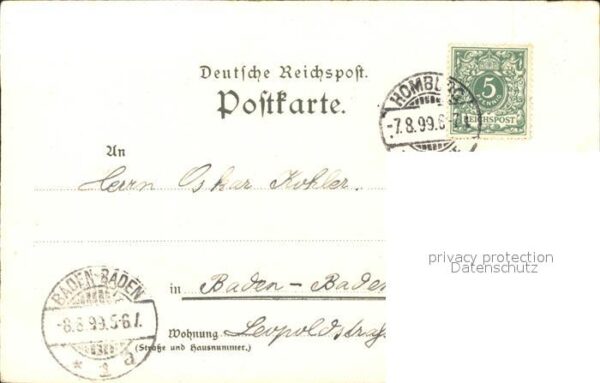 Deutsche Reichspost.
Postkarte.
HOMBURG
-7.8.99.6-7.
5
REICHSPOST
An
Herrn Oskar Kohler.
privacy protection
Datenschutz
in Baden-Baden
Wohnung Leopoldstraß
(Straße und Hausnummer.)
BADEN-BADEN
-8.8.99.5-6.V.
* 1 a